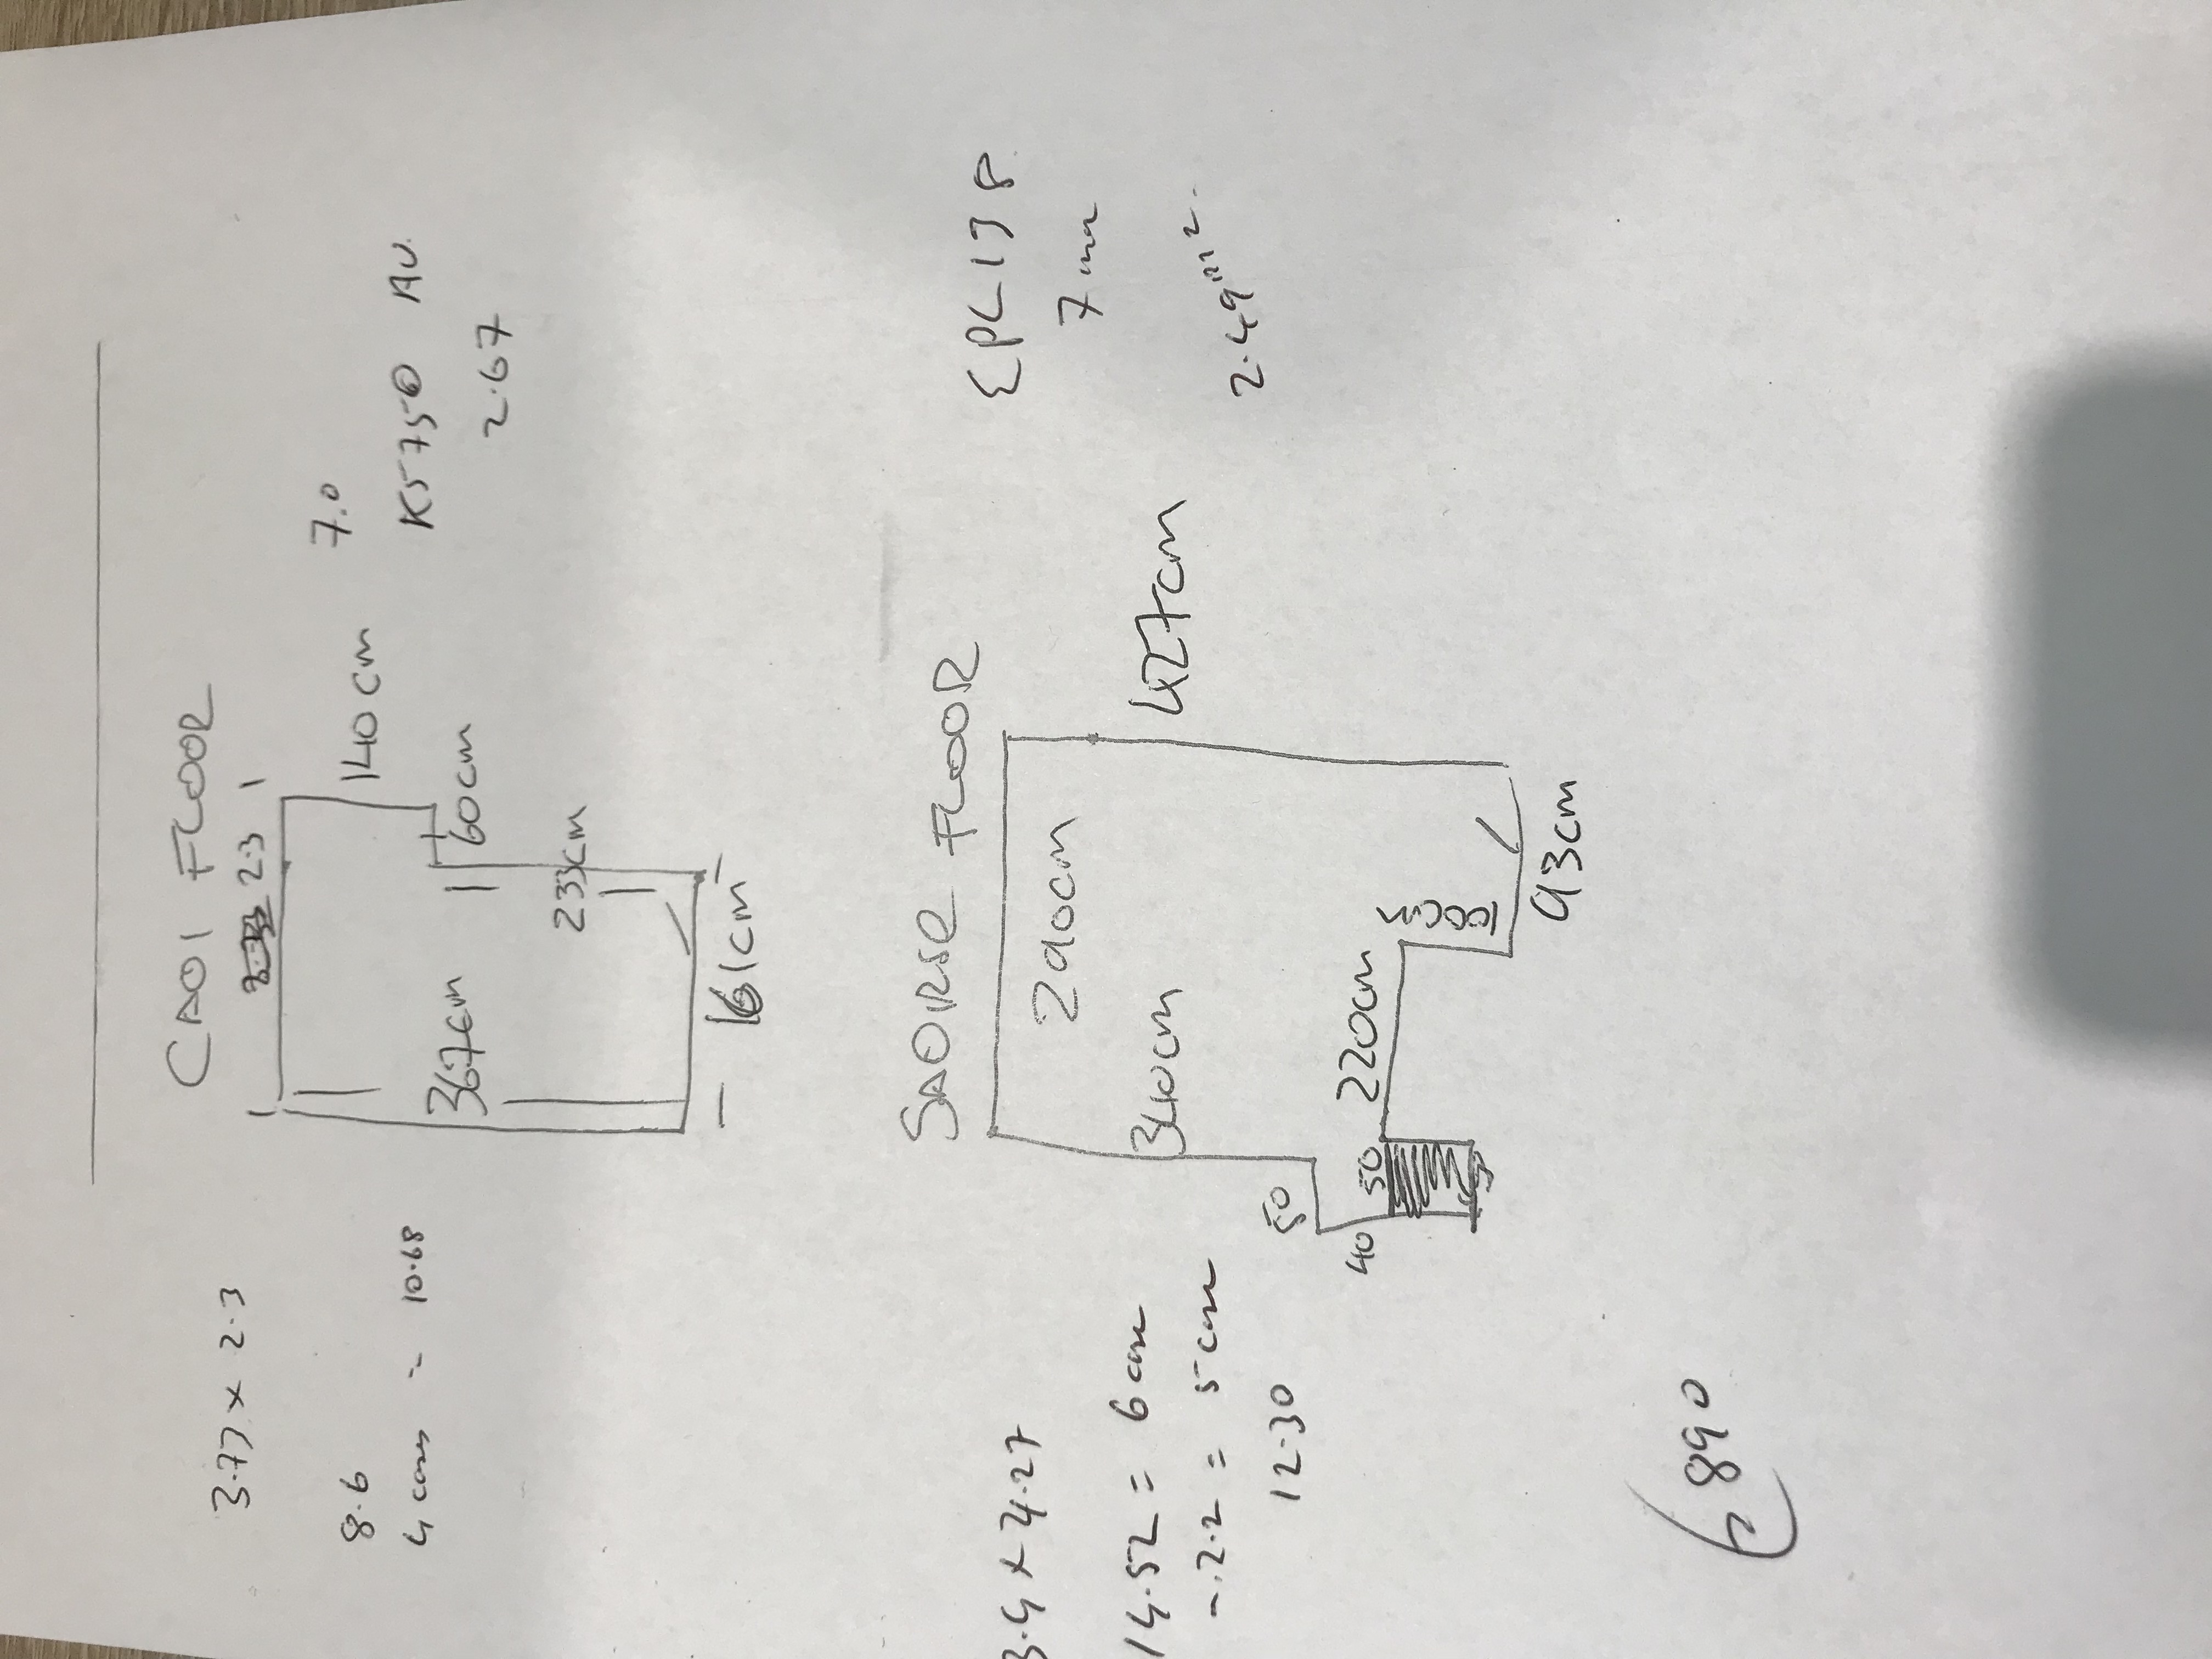 CAOI FLOOR
3.77 x 2.3
2.3
140cm
7.0
8.6
367cm
60cm
K5750 AV
4 cases - 10.68
2.67
233cm
161cm
SAOIRSE FLOOR
EPL178
3.4 x 4.27
290cm
7mm
14.52 = 6 case
340cm
427cm
- 2.2 = 5 case
2.49m2
12.30
50
40
50
220cm
93cm
890